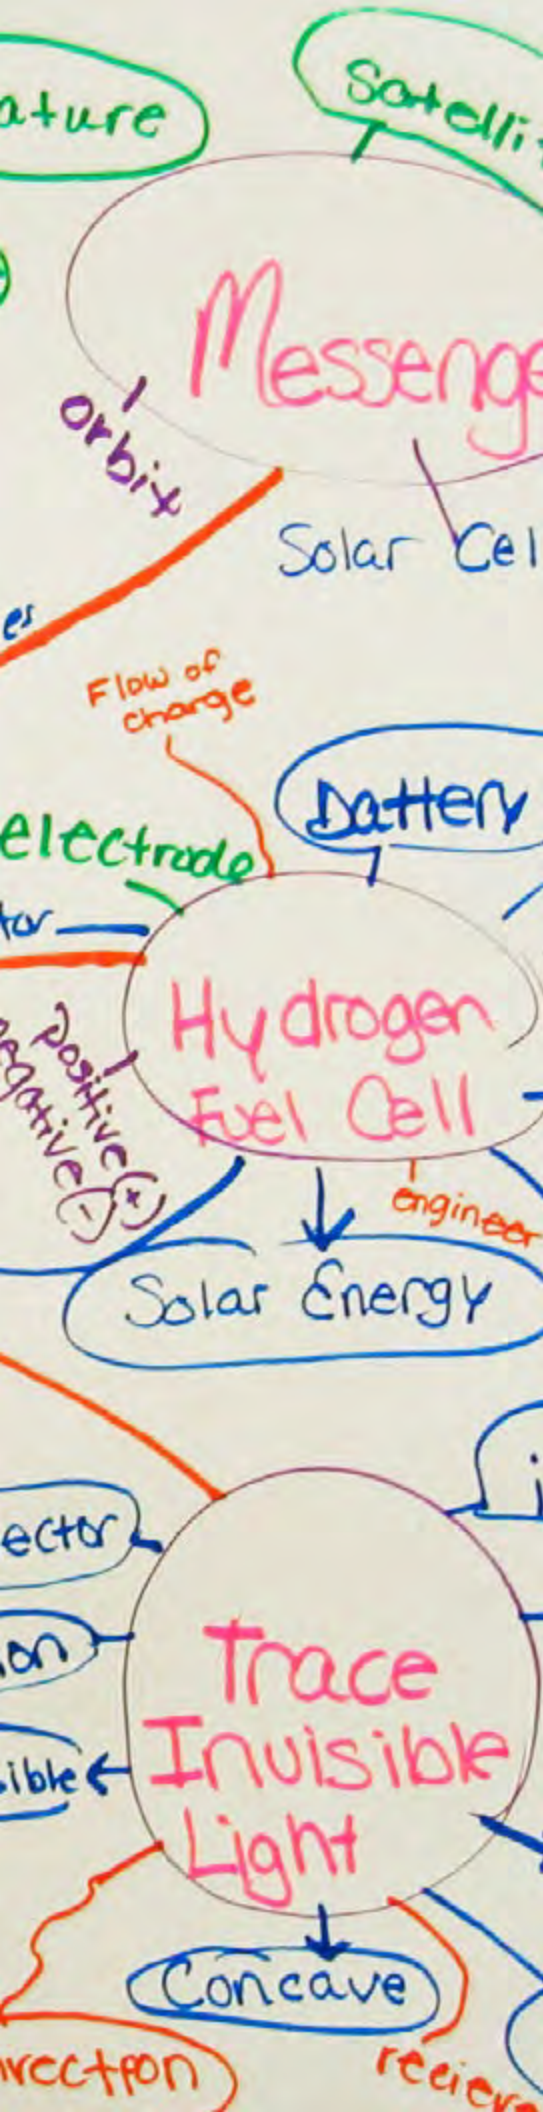 ature
Satelli
Messenge
orbit
Solar Cel
es
Flow of
charge
Battery
electrode
tor
Hydrogen
Fuel Cell
positive (+)
negative (-)
engineer
Solar Energy
i
ector
ion
Trace
Invisible
Light
ible
Concave
irection
reciev